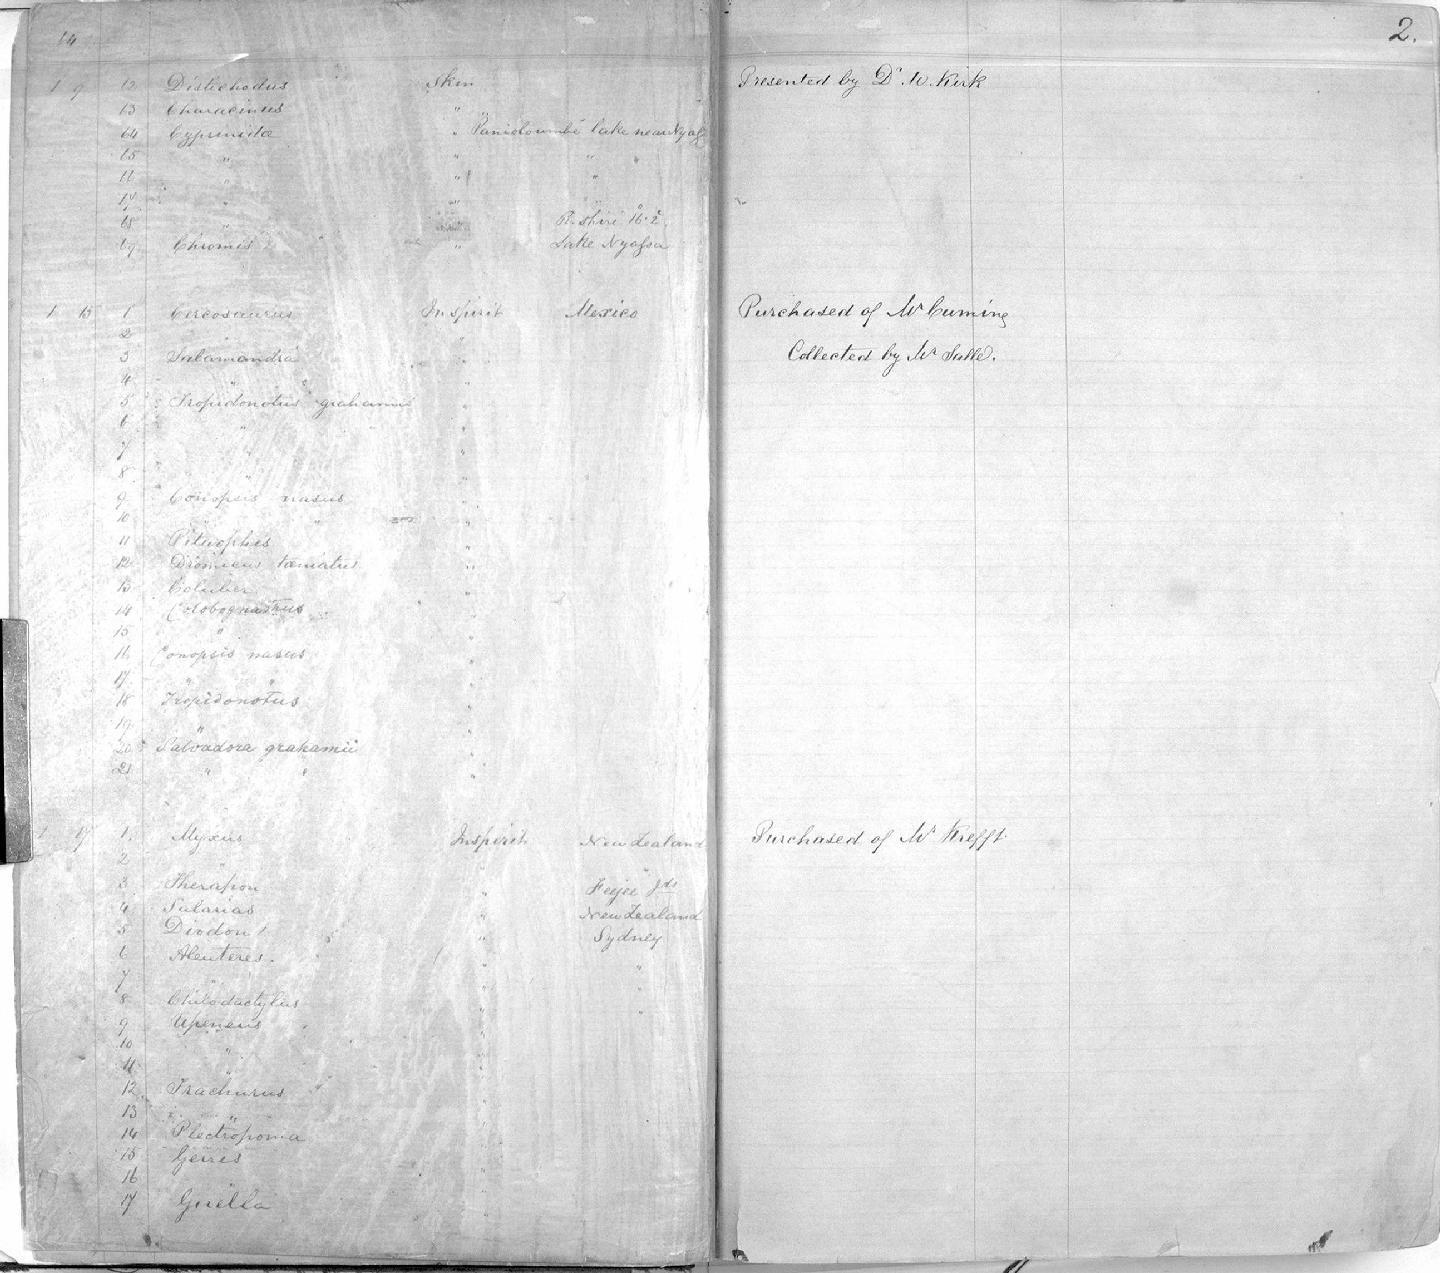 64
2.
1 9 12 Distichodus Skin Presented by Dr. W. Kirk
13 Characinus "
64 Cyprinidæ " Pamoloumbé lake near Nyass
65 " " " "
" " "
" "
68 " " R. Shiri 16° 2.
69 Chromis " Lake Nyassa
1 15 1 Cercosaurus In Spirit Mexico Purchased of Mr. Cuming
2 " "
3 Salamandra " Collected by Mr. Sallé.
4 " " "
5 Tropidonotus grahamii "
6 " "
7 " "
8 "
9 Conopsis nasus "
10 " " "
11 Pituophis "
12 Dromicus tæniatus "
13 Coluber
14 Colobognathus "
15 " "
16 Conopsis nasus "
17 " " "
18 Tropidonotus "
19 " "
20 Salvadora grahamii "
21 " " "
1 17 1. Myxus In Spirit New Zealand Purchased of Mr. Krefft
2 " " "
3 Therapon " Feejee Ids
4 Salarias " New Zealand
5 Diodon " Sydney
6 Aleuteres. " "
7 " "
8 Chilodactylus " "
9 Upeneus "
10 " "
11 " "
12 Trachurus "
13 " "
14 Plectropoma "
15 Gerres "
16 "
17 Girella